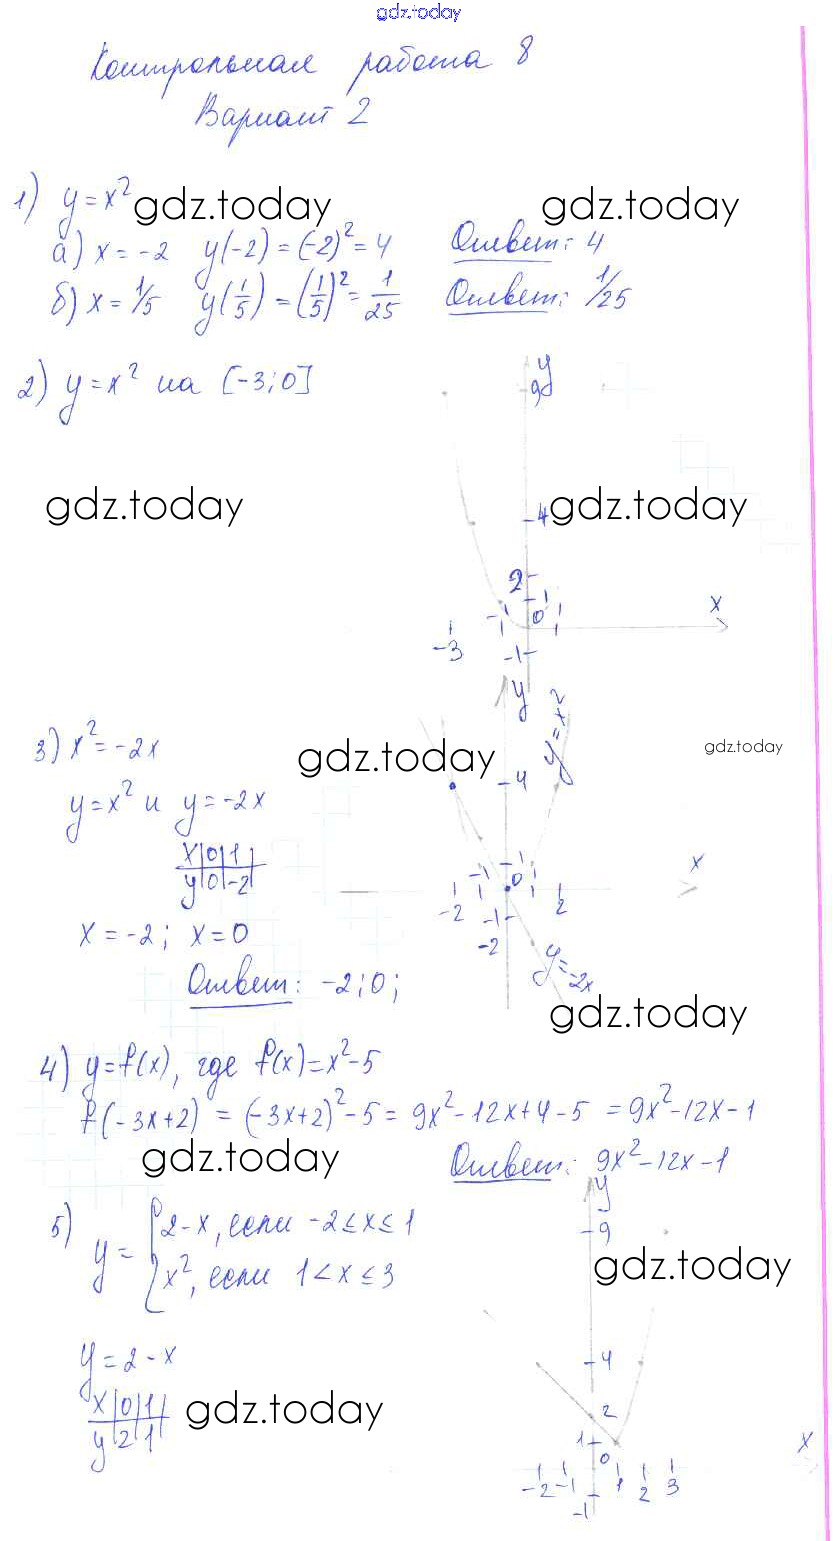 gdz.today
Контрольная работа 8
Вариант 2
1) y = x²
gdz.today gdz.today
а) x = -2 y(-2) = (-2)² = 4 Ответ: 4
б) x = 1/5 y(1/5) = (1/5)² = 1/25 Ответ: 1/25
2) y = x² на [-3; 0]
y
9
gdz.today gdz.today
4
2
1 0 1 x
-3 -1
-1
y
y = x²
3) x² = -2x
gdz.today gdz.today
4
y = x² и y = -2x
x | 0 | 1
y | 0 | -2
x
-1 1 0 1
-2 2
-1
x = -2; x = 0
-2
y = -2x
Ответ: -2; 0;
gdz.today
4) y = f(x), где f(x) = x² - 5
f(-3x+2) = (-3x+2)² - 5 = 9x² - 12x + 4 - 5 = 9x² - 12x - 1
gdz.today
Ответ: 9x² - 12x - 1
y
5) y = { 2 - x, если -2 ≤ x ≤ 1
9
x², если 1 < x ≤ 3
gdz.today
y = 2 - x
4
x | 0 | 1
y | 2 | 1
gdz.today
2
1
0 x
-2 -1 1 2 3
-1